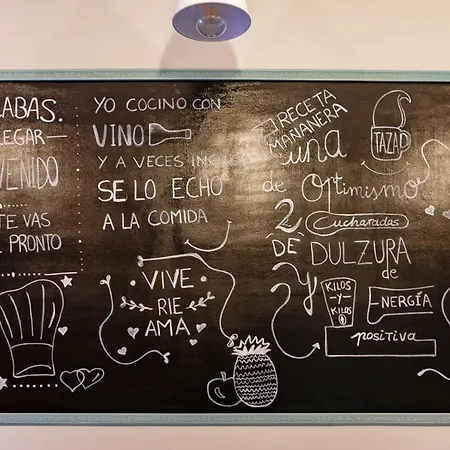 ABAS.
LEGAR
VENIDO
TE VAS
PRONTO
YO COCINO CON
VINO
Y A VECES
SE LO ECHO
A LA COMIDA
VIVE
RIE
AMA
RECETA
MAÑANERA
una
TAZA
de OPtimismo
2 Cucharadas
DE DULZURA
de
Y KILOS
Y
KILOS
ENERGÍA
positiva